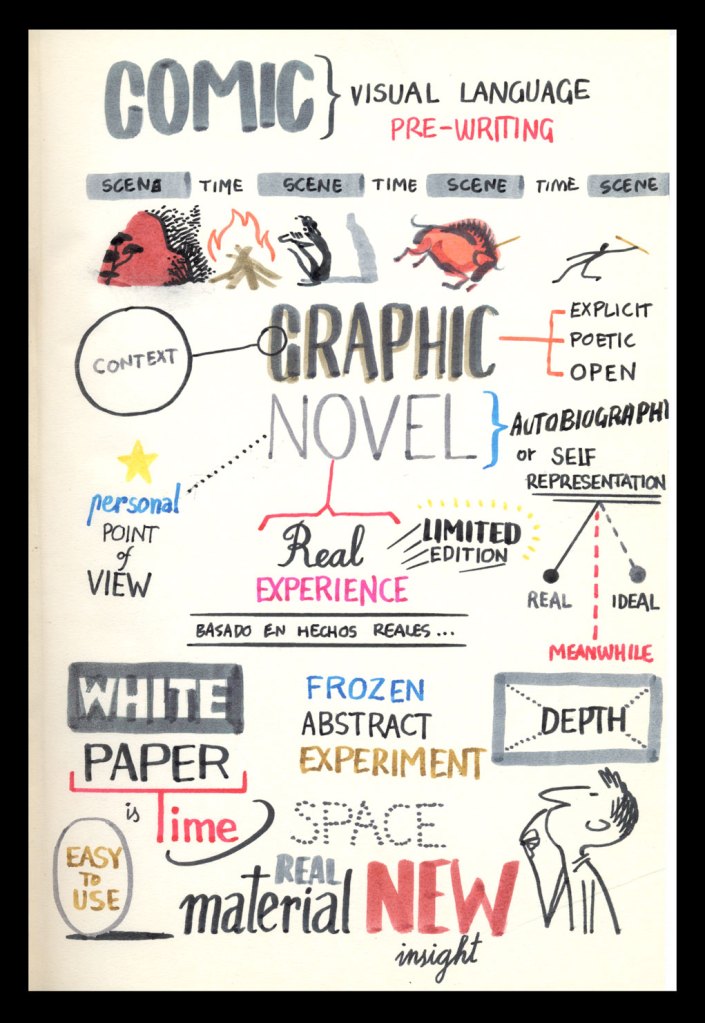 COMIC
VISUAL LANGUAGE
PRE-WRITING
SCENE TIME SCENE TIME SCENE TIME SCENE
CONTEXT
GRAPHIC
EXPLICIT
POETIC
OPEN
NOVEL
AUTOBIOGRAPHI
or SELF
REPRESENTATION
personal
POINT
of
VIEW
Real
EXPERIENCE
LIMITED
EDITION
BASADO EN HECHOS REALES...
REAL IDEAL
MEANWHILE
WHITE
PAPER
is Time
FROZEN
ABSTRACT
EXPERIMENT
DEPTH
SPACE
EASY
TO
USE
REAL
material NEW
insight